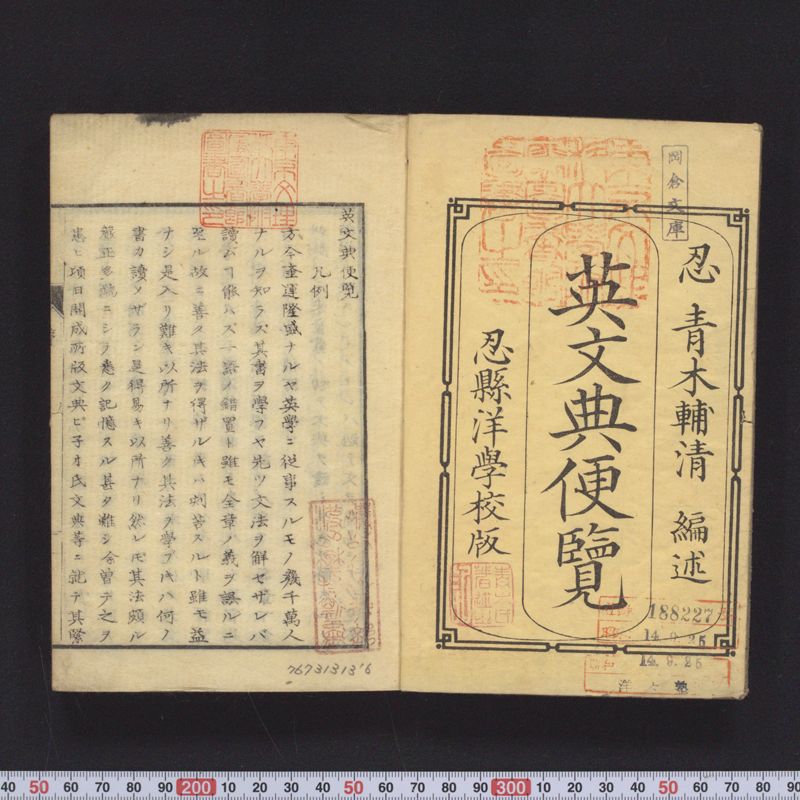 岡倉文庫
忍 青木輔清 編述
英文典便覽
忍縣洋學校版
188227
14.9.25
14.9.25
英文典便覧
凡例
方今奎運隆盛ナルヤ英學ニ從事スルモノ幾千萬人
ナルヲ知ラズ其書ヲ學フヤ先ツ文法ヲ解セザレバ
讀ム丁能ハズ一語ノ錯置ト雖モ全章ノ義ヲ誤ルニ
至ル故ニ善ク其法ヲ得ザル片ハ刻苦スルト雖モ益
ナシ是入リ難キ以所ナリ善ク其法ヲ學ブ片ハ何ノ
書カ讀メザラン是得易キ以所ナリ然レ𪜈其法頗ル
ニシテ悉ク記憶スル甚タ難シ余曽テ之ヲ
患ヒ項日開成所版文典ピ子オ氏文典等ニ就テ其緊
7673131316
40 50 60 70 80 90 200 10 20 30 40 50 60 70 80 90 300 10 20 30 40 50 60 70 80